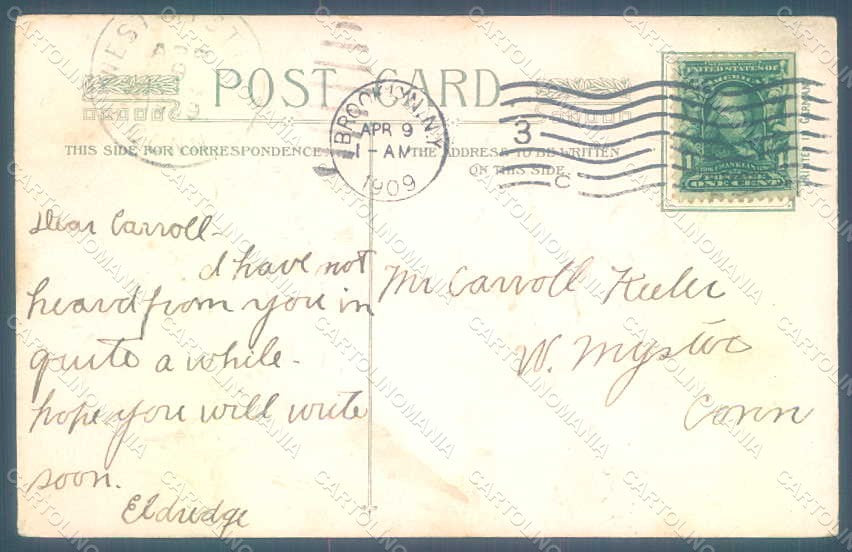 POST CARD
THIS SIDE FOR CORRESPONDENCE
THE ADDRESS TO BE WRITTEN
ON THIS SIDE
BROOKLYN, N.Y.
APR 9
1-AM
1909
3
C
UNITED STATES OF
AMERICA
1 1
POSTAGE
ONE CENT
PRINTED IN GERMANY
Dear Carroll-
I have not
heard from you in
quite a while-
hope you will write
soon.
Eldredge
Mr Carroll Keeler
W. Mystic
Conn
CARTOLINOMANIA